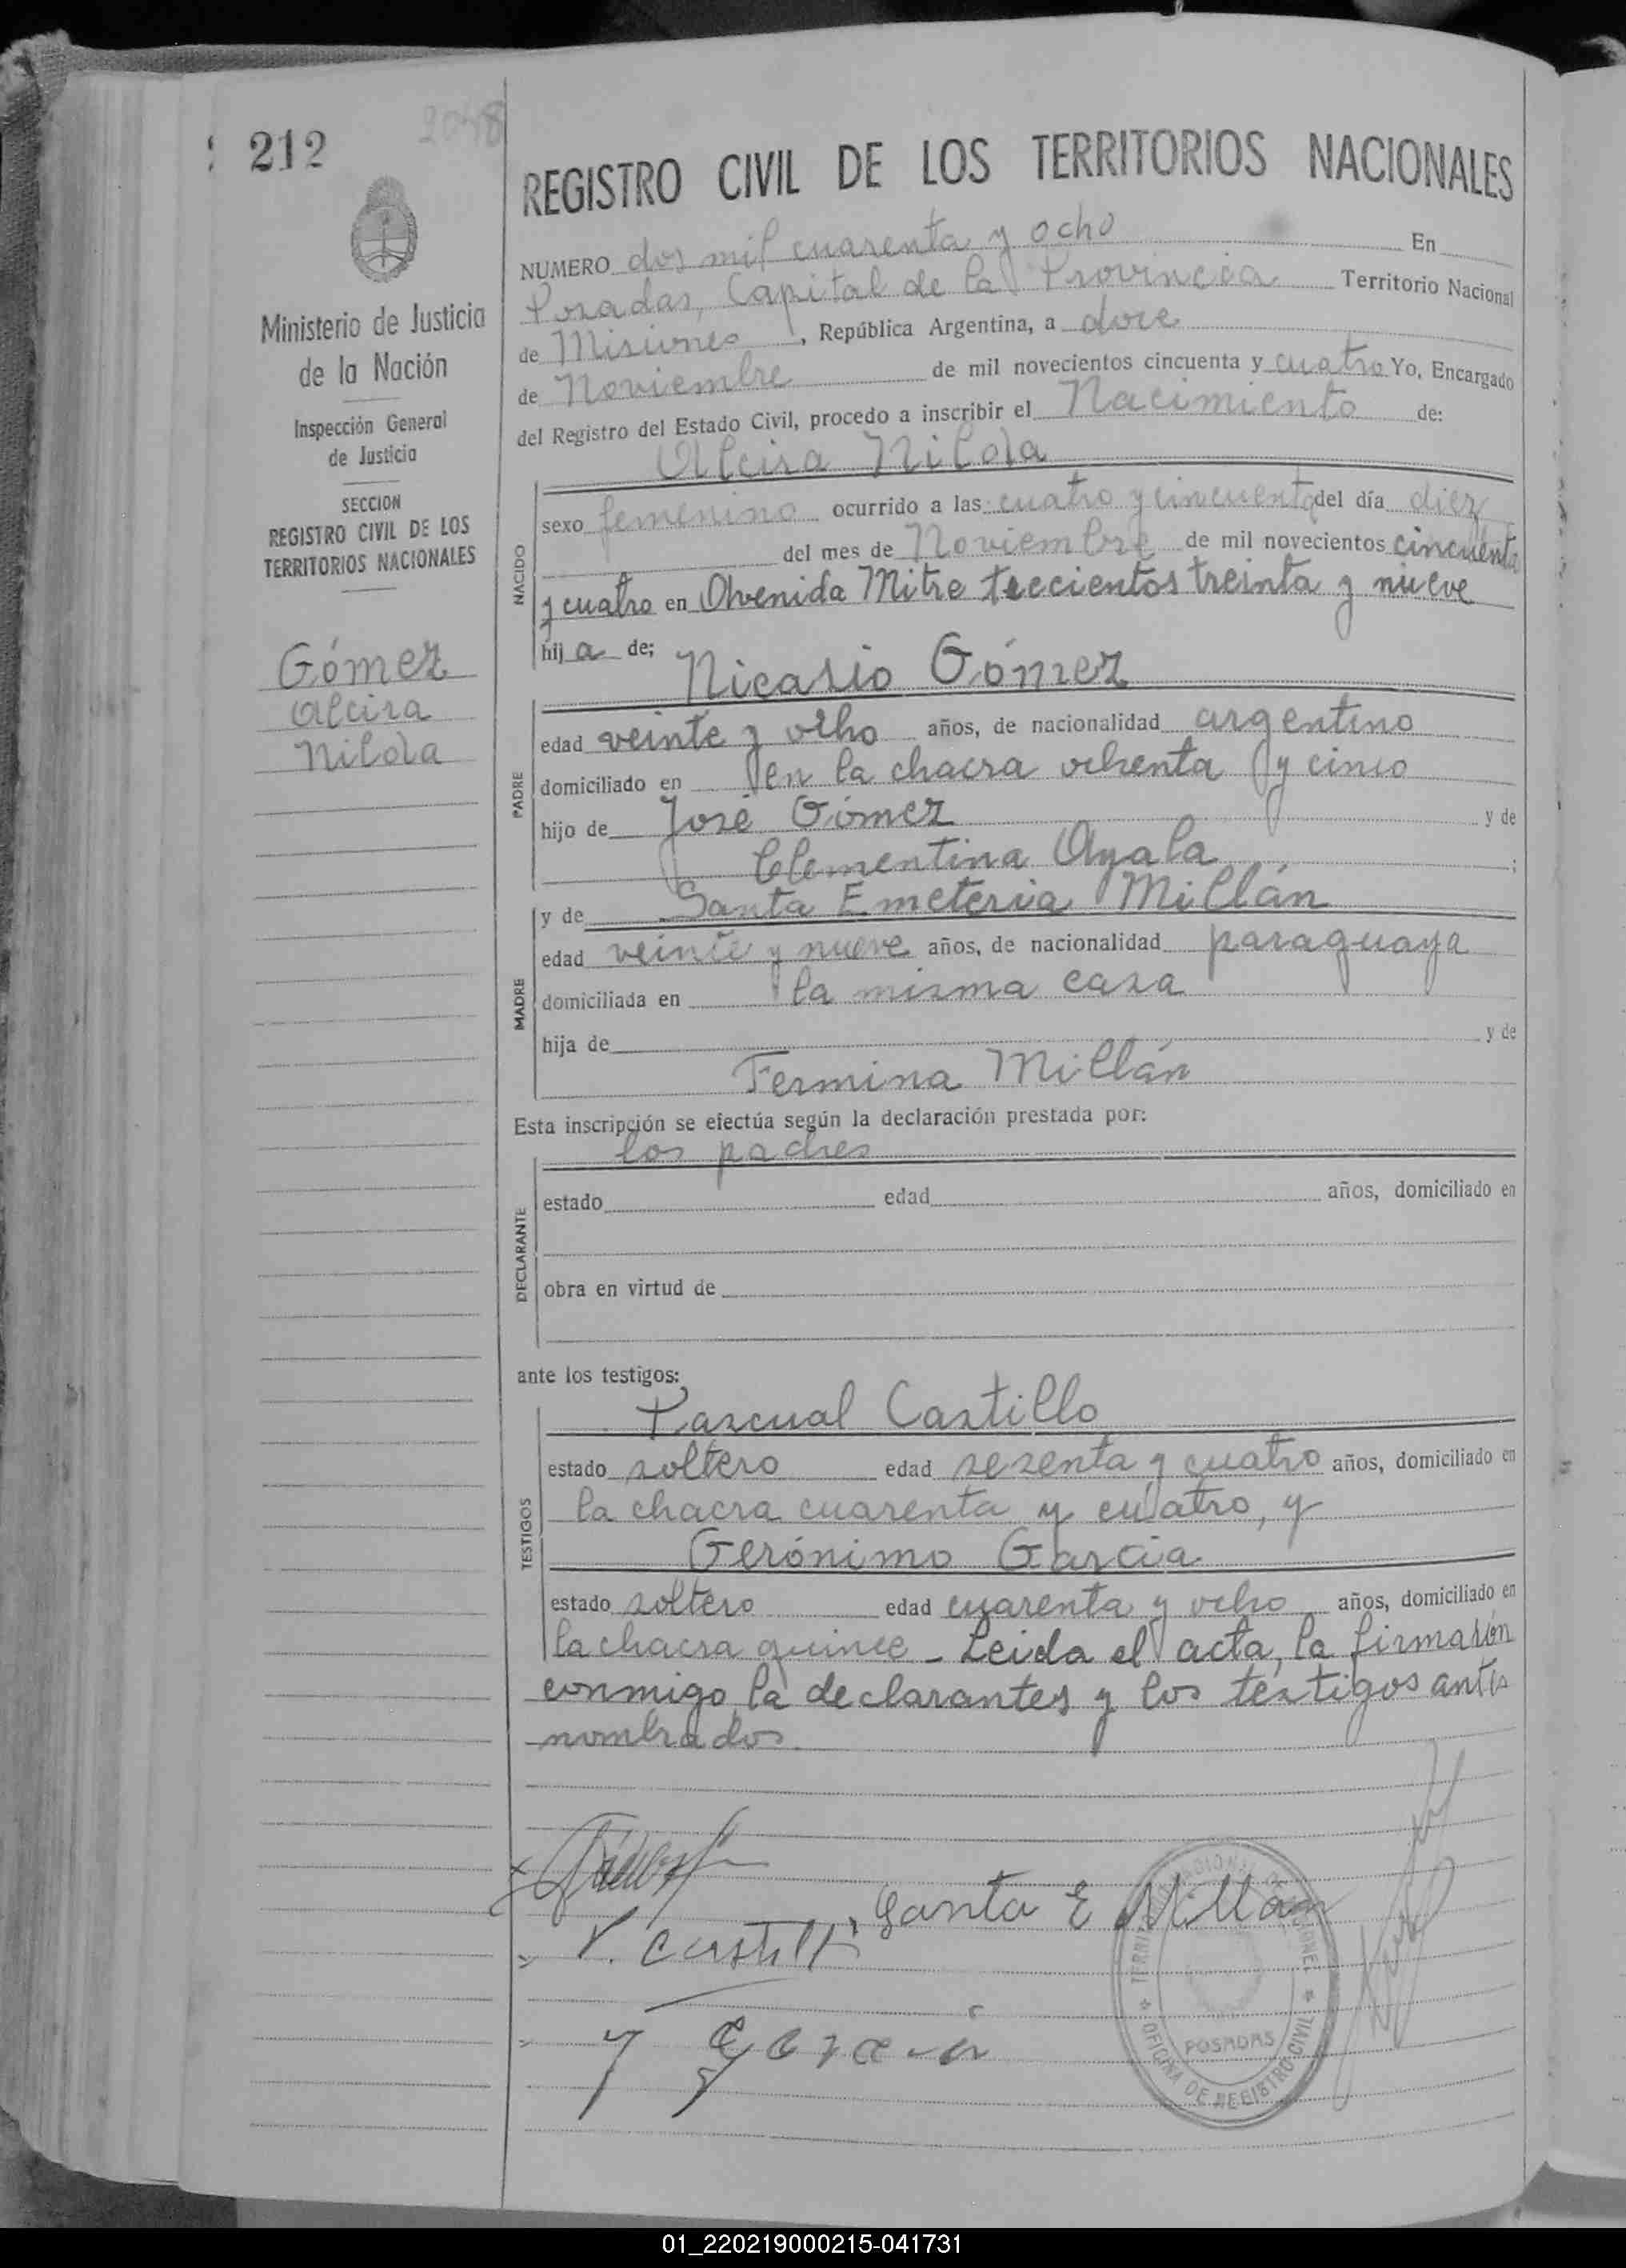 212
2048
Ministerio de Justicia
de la Nación
Inspección General
de Justicia
SECCION
REGISTRO CIVIL DE LOS
TERRITORIOS NACIONALES
Gómez
Alcira
Nilda
REGISTRO CIVIL DE LOS TERRITORIOS NACIONALES
NUMERO dos mil cuarenta y ocho En
Posadas, Capital de la Provincia Territorio Nacional
de Misiones, República Argentina, a doce
de Noviembre de mil novecientos cincuenta y cuatro Yo, Encargado
del Registro del Estado Civil, procedo a inscribir el Nacimiento de:
Alcira Nilda
NACIDO
sexo femenino ocurrido a las cuatro y cincuenta del día diez
del mes de Noviembre de mil novecientos cincuenta
y cuatro en Avenida Mitre treccientos treinta y nueve
hij a de;
Nicasio Gómez
PADRE
edad veinte y ocho años, de nacionalidad argentino
domiciliado en en la chacra ochenta y cinco
hijo de José Gómez y de
Clementina Ayala ;
MADRE
y de Santa Emeteria Millán
edad veinte y nueve años, de nacionalidad paraguaya
domiciliada en la misma casa
hija de y de
Fermina Millán
Esta inscripción se efectúa según la declaración prestada por:
los padres
DECLARANTE
estado edad años, domiciliado en
obra en virtud de
ante los testigos:
Pascual Castillo
TESTIGOS
estado soltero edad sesenta y cuatro años, domiciliado en
la chacra cuarenta y cuatro, y
Gerónimo Garcia
estado soltero edad cuarenta y ocho años, domiciliado en
la chacra quince - Leida el acta, la firmarón
conmigo, la declarantes y los testigos antes
nombrados.
Santa E Millán
P. Castill
y Garcia
OFICINA DE REGISTRO CIVIL
POSADAS
01_220219000215-041731